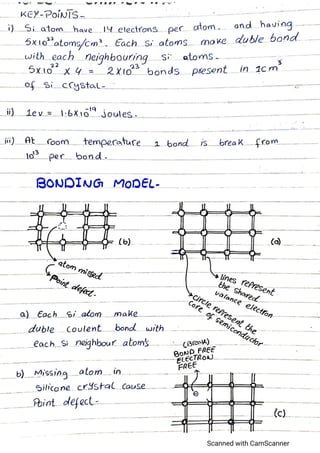 KEY-POINTS-
i) Si atom have 14 electrons per atom. and having
5x10²² atoms/cm³. Each Si atoms make duble bond
with each neighbouring Si atoms-
5x10²² x 4 = 2x10²³ bonds present in 1cm³
of Si crystal-
ii) 1ev = 1.6x10⁻¹⁹ Joules.
iii) At room temperature 1 bond is break from
10¹³ per bond.
BONDING MODEL-
(b)
(a)
atom missed
Point defect-
lines represent
the shared
valance electron
circle represent the
core of semiconductor
a) Each Si atom make
duble coulent bond with
each Si neighbour atoms
b) Missing atom in
Silicone crystal cause
Point defect-
BOND FREE
ELECTRON
FREE
(c)
Scanned with CamScanner